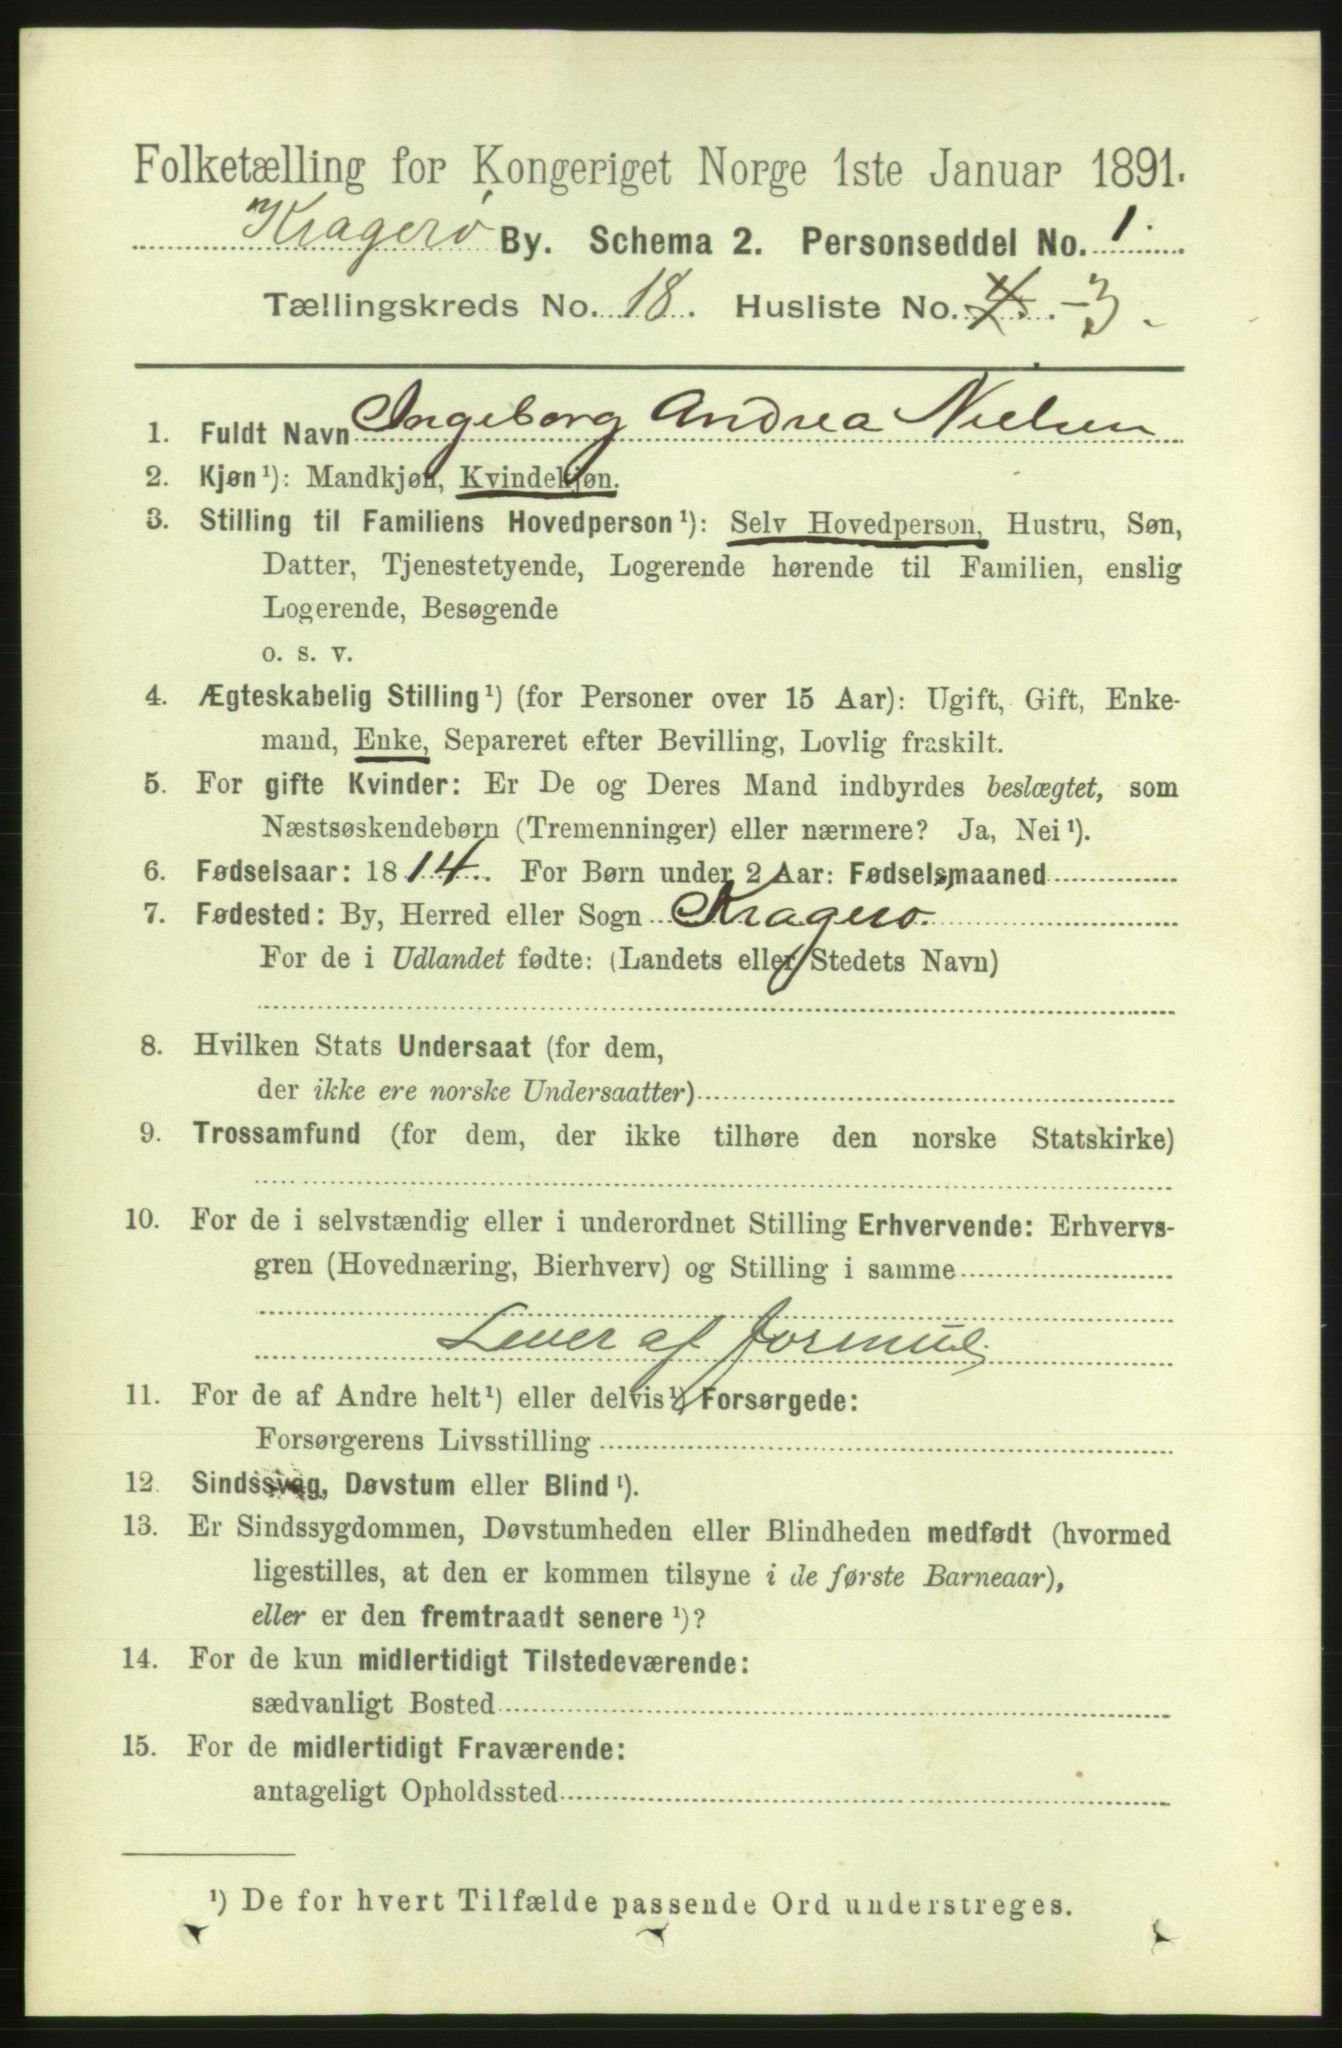 Folketælling for Kongeriget Norge 1ste Januar 1891.
Kragerø By. Schema 2. Personseddel No. 1.
Tællingskreds No. 18. Husliste No. 3.
1. Fuldt Navn Ingeborg Andrea Nielsen
2. Kjøn¹): Mandkjøn, Kvindekjøn.
3. Stilling til Familiens Hovedperson¹): Selv Hovedperson, Hustru, Søn,
Datter, Tjenestetyende, Logerende hørende til Familien, enslig
Logerende, Besøgende
o. s. v.
4. Ægteskabelig Stilling¹) (for Personer over 15 Aar): Ugift, Gift, Enke-
mand, Enke, Separeret efter Bevilling, Lovlig fraskilt.
5. For gifte Kvinder: Er De og Deres Mand indbyrdes beslægtet, som
Næstsøskendebørn (Tremenninger) eller nærmere? Ja, Nei¹).
6. Fødselsaar: 1814. For Børn under 2 Aar: Fødselsmaaned
7. Fødested: By, Herred eller Sogn Kragerø.
For de i Udlandet fødte: (Landets eller Stedets Navn)
8. Hvilken Stats Undersaat (for dem,
der ikke ere norske Undersaatter)
9. Trossamfund (for dem, der ikke tilhøre den norske Statskirke)
10. For de i selvstændig eller i underordnet Stilling Erhvervende: Erhvervs-
gren (Hovednæring, Bierhverv) og Stilling i samme
Lever af formue
11. For de af Andre helt¹) eller delvis¹) Forsørgede:
Forsørgerens Livsstilling
12. Sindssvag, Døvstum eller Blind¹).
13. Er Sindssygdommen, Døvstumheden eller Blindheden medfødt (hvormed
ligestilles, at den er kommen tilsyne i de første Barneaar),
eller er den fremtraadt senere¹)?
14. For de kun midlertidigt Tilstedeværende:
sædvanligt Bosted
15. For de midlertidigt Fraværende:
antageligt Opholdssted
¹) De for hvert Tilfælde passende Ord understreges.